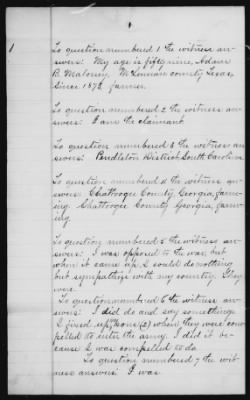 1
To question numbered 1 the witness an-
swers: My age is fifty nine, Adam
B. Maloney. McLennan county, Texas,
Since 1872, farmer.
To question numbered 2 the witness an-
swers: I am the claimant
To question numbered 3 the witness an-
swers: Pendleton District South Carolina
To question numbered 4 the witness an-
swers: Chattooga County, Georgia, farm-
ing. Chattooga County Georgia, farm-
ing
To question numbered 5 the witness
answers: I was opposed to the war, but
when it came up I could do nothing
but sympathize with my country. They
were
To question numbered 6 the witness an-
swers: I did do and say something
I fixed up my sons (2) when they were com-
pelled to enter the army. I did it be-
cause I was compelled to do
To question numbered 7 the wit-
ness answers: I was